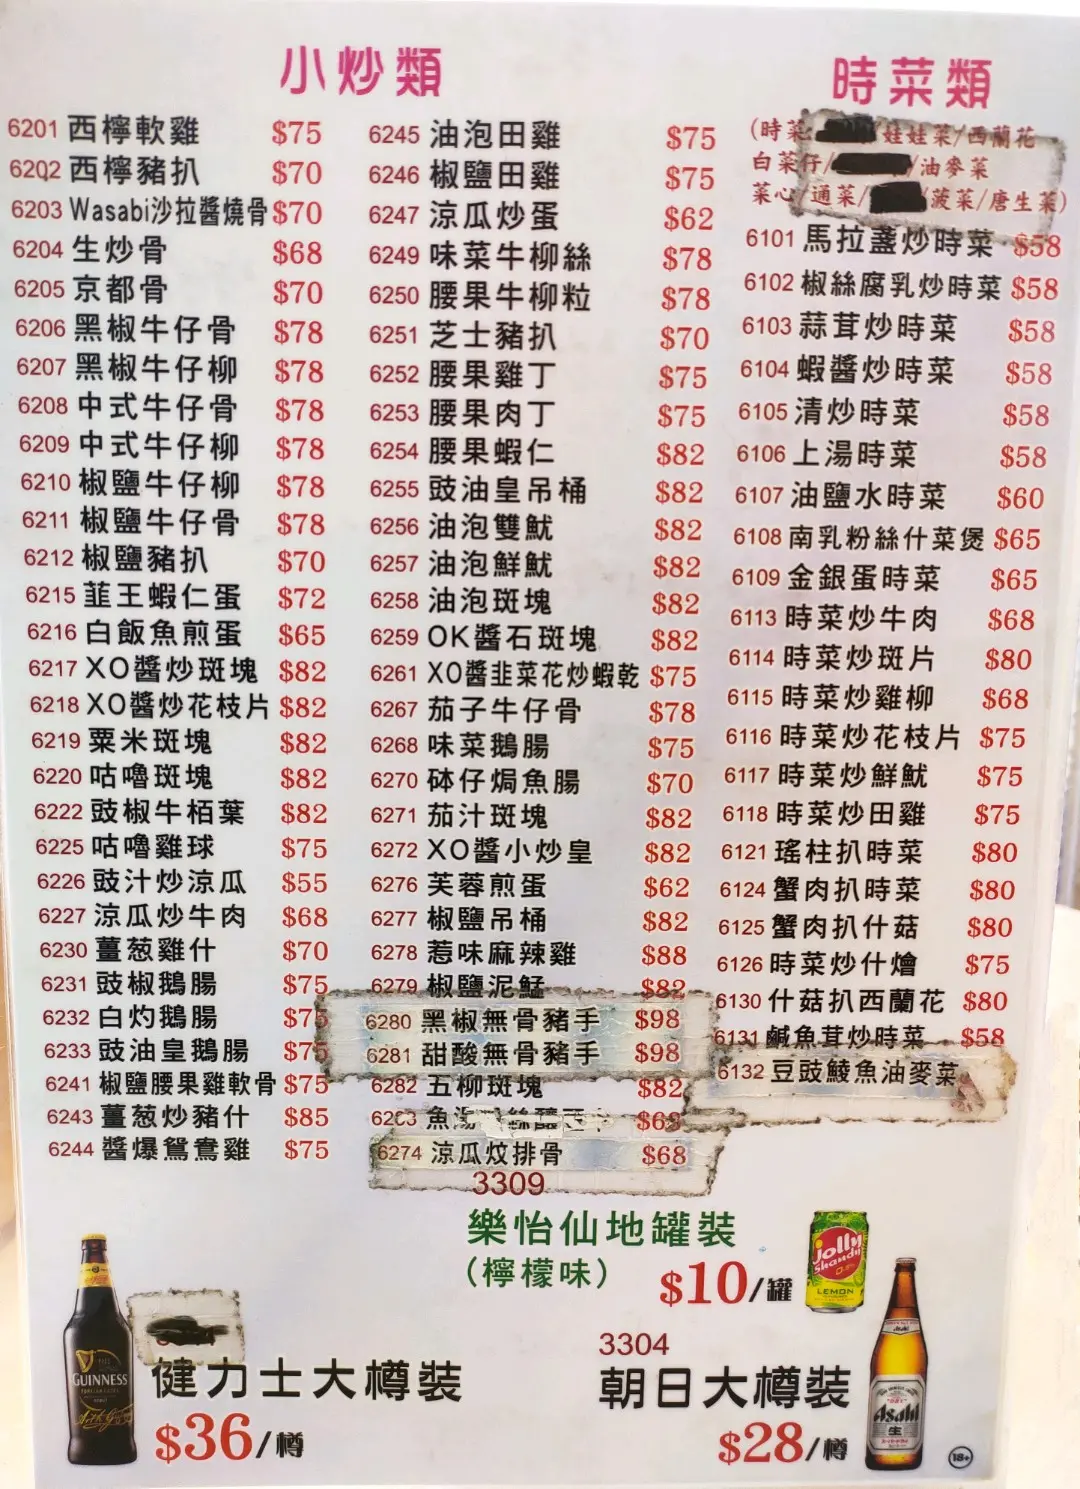 小炒類
6201 西檸軟雞 $75
6202 西檸豬扒 $70
6203 Wasabi沙拉醬燒骨 $70
6204 生炒骨 $68
6205 京都骨 $70
6206 黑椒牛仔骨 $78
6207 黑椒牛仔柳 $78
6208 中式牛仔骨 $78
6209 中式牛仔柳 $78
6210 椒鹽牛仔柳 $78
6211 椒鹽牛仔骨 $78
6212 椒鹽豬扒 $70
6215 韮王蝦仁蛋 $72
6216 白飯魚煎蛋 $65
6217 XO醬炒斑塊 $82
6218 XO醬炒花枝片 $82
6219 粟米斑塊 $82
6220 咕嚕斑塊 $82
6222 豉椒牛栢葉 $82
6225 咕嚕雞球 $75
6226 豉汁炒涼瓜 $55
6227 涼瓜炒牛肉 $68
6230 薑葱雞什 $70
6231 豉椒鵝腸 $75
6232 白灼鵝腸 $75
6233 豉油皇鵝腸 $75
6241 椒鹽腰果雞軟骨 $75
6243 薑葱炒豬什 $85
6244 醬爆鴛鴦雞 $75
6245 油泡田雞 $75
6246 椒鹽田雞 $75
6247 涼瓜炒蛋 $62
6249 味菜牛柳絲 $78
6250 腰果牛柳粒 $78
6251 芝士豬扒 $70
6252 腰果雞丁 $75
6253 腰果肉丁 $75
6254 腰果蝦仁 $82
6255 豉油皇吊桶 $82
6256 油泡雙魷 $82
6257 油泡鮮魷 $82
6258 油泡斑塊 $82
6259 OK醬石斑塊 $82
6261 XO醬韭菜花炒蝦乾 $75
6267 茄子牛仔骨 $78
6268 味菜鵝腸 $75
6270 砵仔焗魚腸 $70
6271 茄汁斑塊 $82
6272 XO醬小炒皇 $82
6276 芙蓉煎蛋 $62
6277 椒鹽吊桶 $82
6278 惹味麻辣雞 $88
6279 椒鹽泥鯭 $82
6280 黑椒無骨豬手 $98
6281 甜酸無骨豬手 $98
6282 五柳斑塊 $82
魚湯
6274 涼瓜炆排骨 $68
時菜類
(時菜 /娃娃菜/西蘭花
白菜仔/ /油麥菜
菜心/通菜/ /菠菜/唐生菜)
6101 馬拉盞炒時菜 $58
6102 椒絲腐乳炒時菜 $58
6103 蒜茸炒時菜 $58
6104 蝦醬炒時菜 $58
6105 清炒時菜 $58
6106 上湯時菜 $58
6107 油鹽水時菜 $60
6108 南乳粉絲什菜煲 $65
6109 金銀蛋時菜 $65
6113 時菜炒牛肉 $68
6114 時菜炒斑片 $80
6115 時菜炒雞柳 $68
6116 時菜炒花枝片 $75
6117 時菜炒鮮魷 $75
6118 時菜炒田雞 $75
6121 瑤柱扒時菜 $80
6124 蟹肉扒時菜 $80
6125 蟹肉扒什菇 $80
6126 時菜炒什燴 $75
6130 什菇扒西蘭花 $80
6131 鹹魚茸炒時菜 $58
6132 豆豉鯪魚油麥菜
3309
樂怡仙地罐裝
(檸檬味)
$10/罐
Jolly
Shandy
LEMON
GUINNESS
健力士大樽裝
$36/樽
3304
朝日大樽裝
$28/樽
Asahi
生
18+